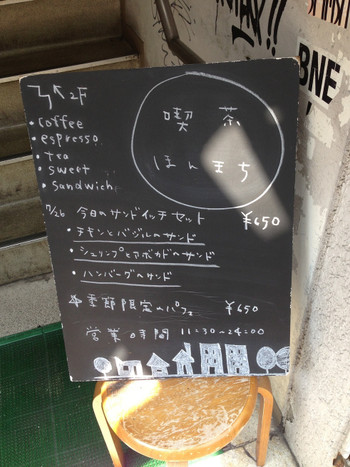 2F
・coffee
・espresso
・tea
・sweet
・sandwich
喫茶
ほんまち
7/26 今日のサンドイッチセット ¥650
・チキンとバジルのサンド
・シュリンプとアボカドのサンド
・ハンバーグのサンド
季節限定のパフェ ¥650
営業時間 11:30-24:00
BNE